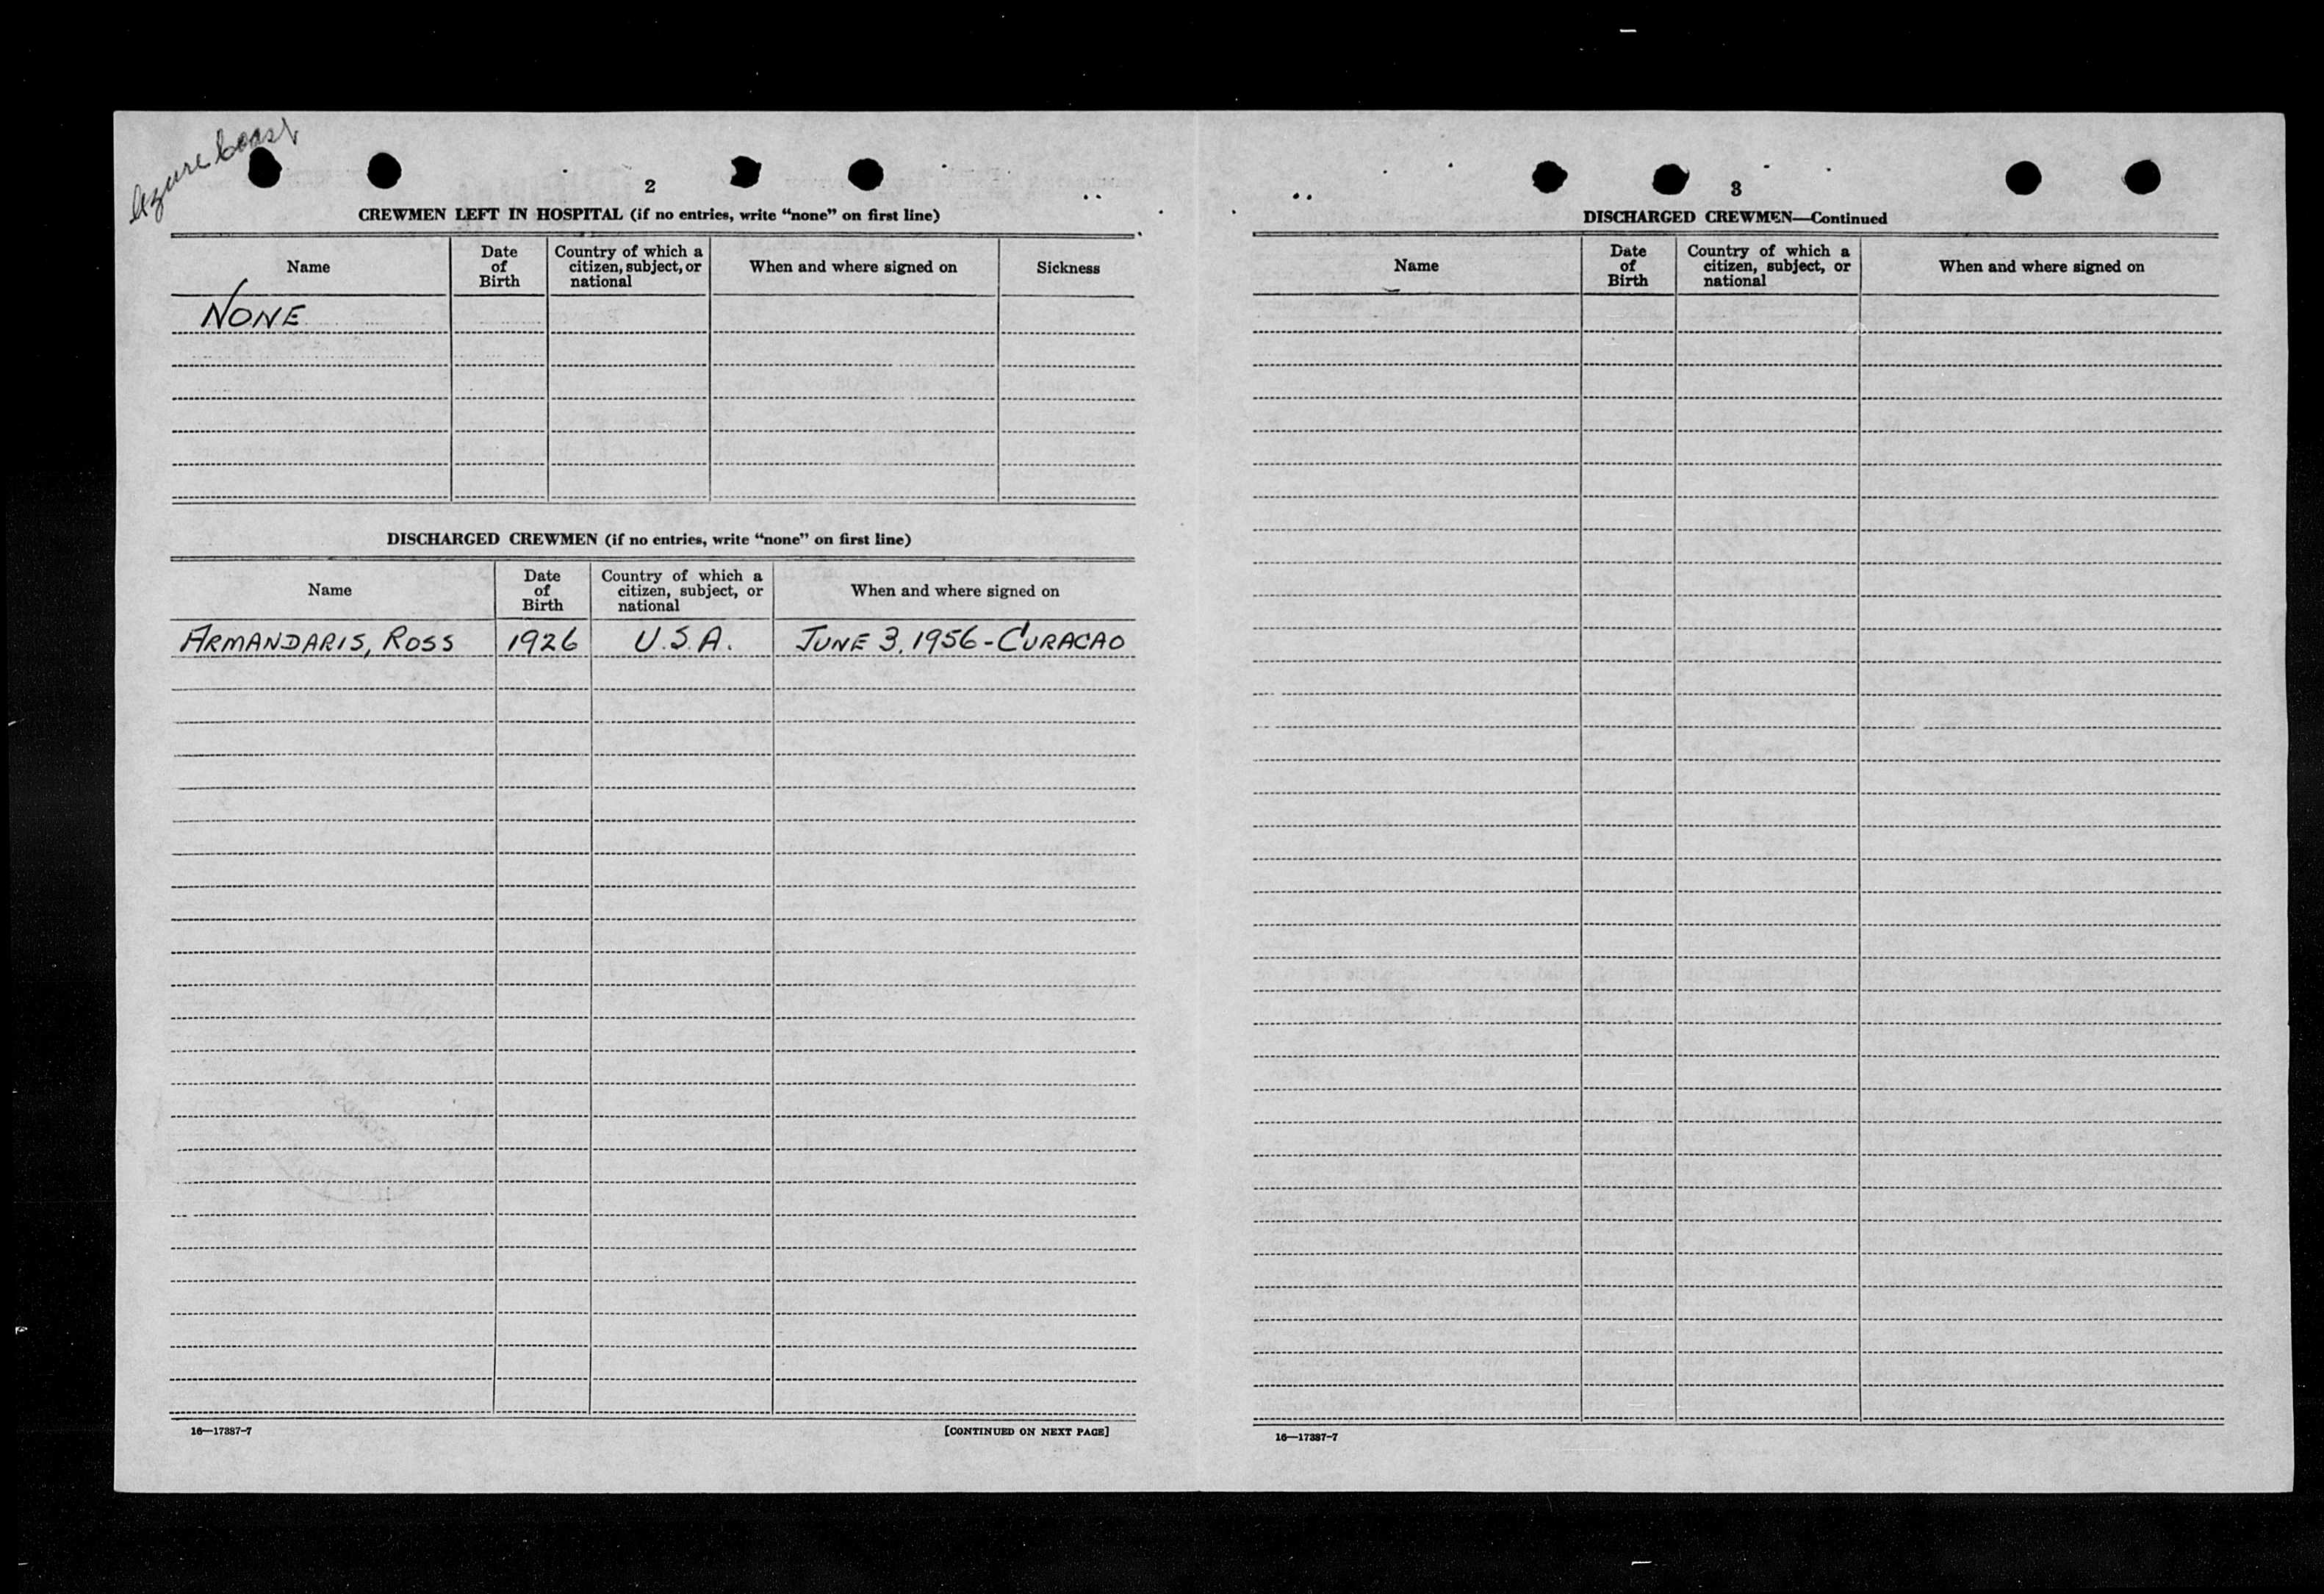 Azure Coast
2
CREWMEN LEFT IN HOSPITAL (if no entries, write “none” on first line)
Name
Date of Birth
Country of which a citizen, subject, or national
When and where signed on
Sickness
NONE
DISCHARGED CREWMEN (if no entries, write “none” on first line)
Name
Date of Birth
Country of which a citizen, subject, or national
When and where signed on
ARMANDARIS, ROSS 1926 U.S.A. JUNE 3, 1956 - CURACAO
16—17387-7
[CONTINUED ON NEXT PAGE]
3
DISCHARGED CREWMEN—Continued
Name
Date of Birth
Country of which a citizen, subject, or national
When and where signed on
16—17387-7